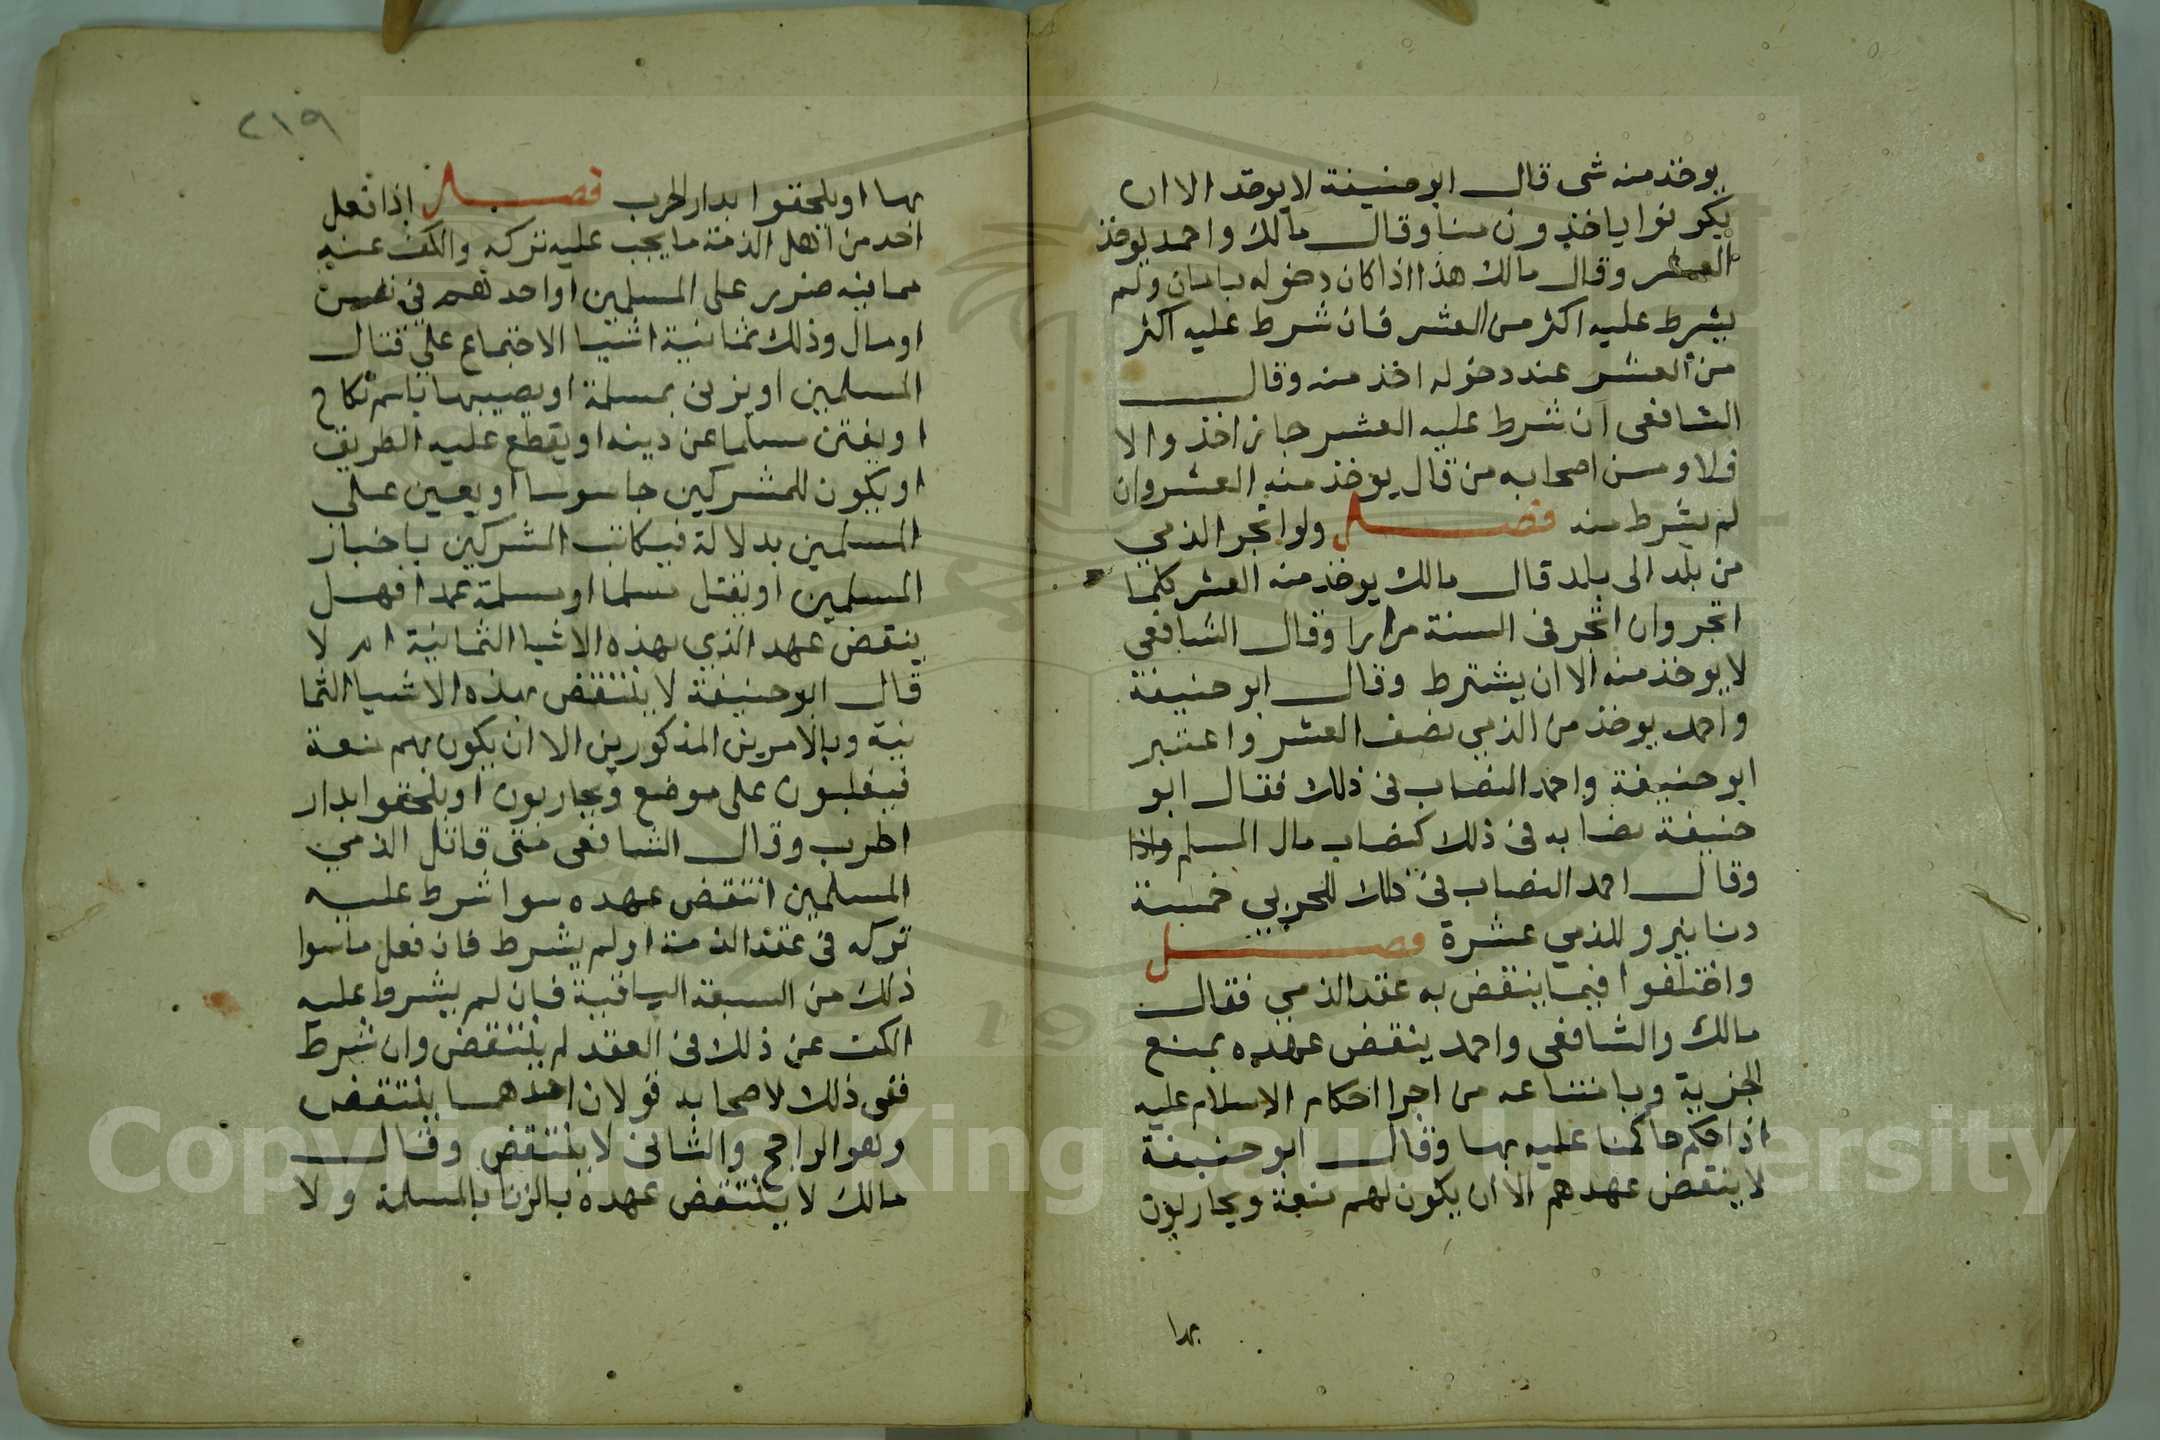 يوخذ منه شى قال ابو حنيفة لا يوخذ الا ان
يكونوا ياخذون منا وقال مالك واحمد يوخذ
العشر وقال مالك هذا اذا كان دخوله بامان ولم
يشرط عليه اكثر من العشر فان شرط عليه اكثر
من العشر عند دخوله اخذ منه وقال
الشافعى ان شرط عليه العشر جاز اخذ والا
فلا ومن اصحابه من قال يوخذ منه العشر وان
لم يشرط منه فصل ولو اتجر الذمي
من بلد الى بلد قال مالك يوخذ منه العشر كلما
اتجر وان اتجر فى السنة مرارا وقال الشافعي
لا يوخذ منه الا ان يشترط وقال ابو حنيفة
واحمد يوخذ من الذمي نصف العشر واعتبر
ابو حنيفة واحمد النصاب فى ذلك فقال ابو
حنيفة نصابه فى ذلك كنصاب مال المسلم واذا
وقال احمد النصاب فى ذلك للحربي خمسة
دنانير وللذمي عشرة فصل
واختلفوا فيما ينتقض به عقد الذمي فقال
مالك والشافعى واحمد ينقض عهده بمنع
الجزية وبامتناعه من اجرا احكام الاسلام عليه
اذا حكم حاكمنا عليه بها وقال ابو حنيفة
لا ينتقض عهدهم الا ان يكون لهم منعة ويحاربون
بها
٢١٩
بها او يلحقوا بدار الحرب فصل اذا فعل
احد من اهل الذمة ما يجب عليه تركه والكف عنه
مما فيه ضرر على المسلمين او احدهم فى نفس
او مال وذلك ثمانية اشيا الاجتماع على قتال
المسلمين او يزنى بمسلمة او يصيبها باسم نكاح
او يفتن مسلما عن دينه او يقطع عليه الطريق
او يكون للمشركين جاسوسا او يعين على
المسلمين بدلالة فيكاتب المشركين باخبار
المسلمين او يقتل مسلما او مسلمة عمدا فهل
ينقض عهد الذي بهذه الاشيا الثمانية ام لا
قال ابو حنيفة لا ينتقض بهذه الاشيا الثما
نية وبالامرين المذكورين الا ان يكون بهم منعة
فيغلبون على موضع ويحاربون او يلحقوا بدار
الحرب وقال الشافعى متى قاتل الذمي
المسلمين انتقض عهده سوا شرط عليه
تركه فى عقد الذمة او لم يشرط فان فعل ما سوا
ذلك من السبعة الباقية فان لم يشرط عليه
الكف عن ذلك فى العقد لم ينتقض وان شرط
ففى ذلك لاصحابه قولان احدهما ينتقض
وهو الراجح والثانى لا ينتقض وقال
مالك لا ينتقض عهده بالزنا بالمسلمة ولا
Copyright © King Saud University